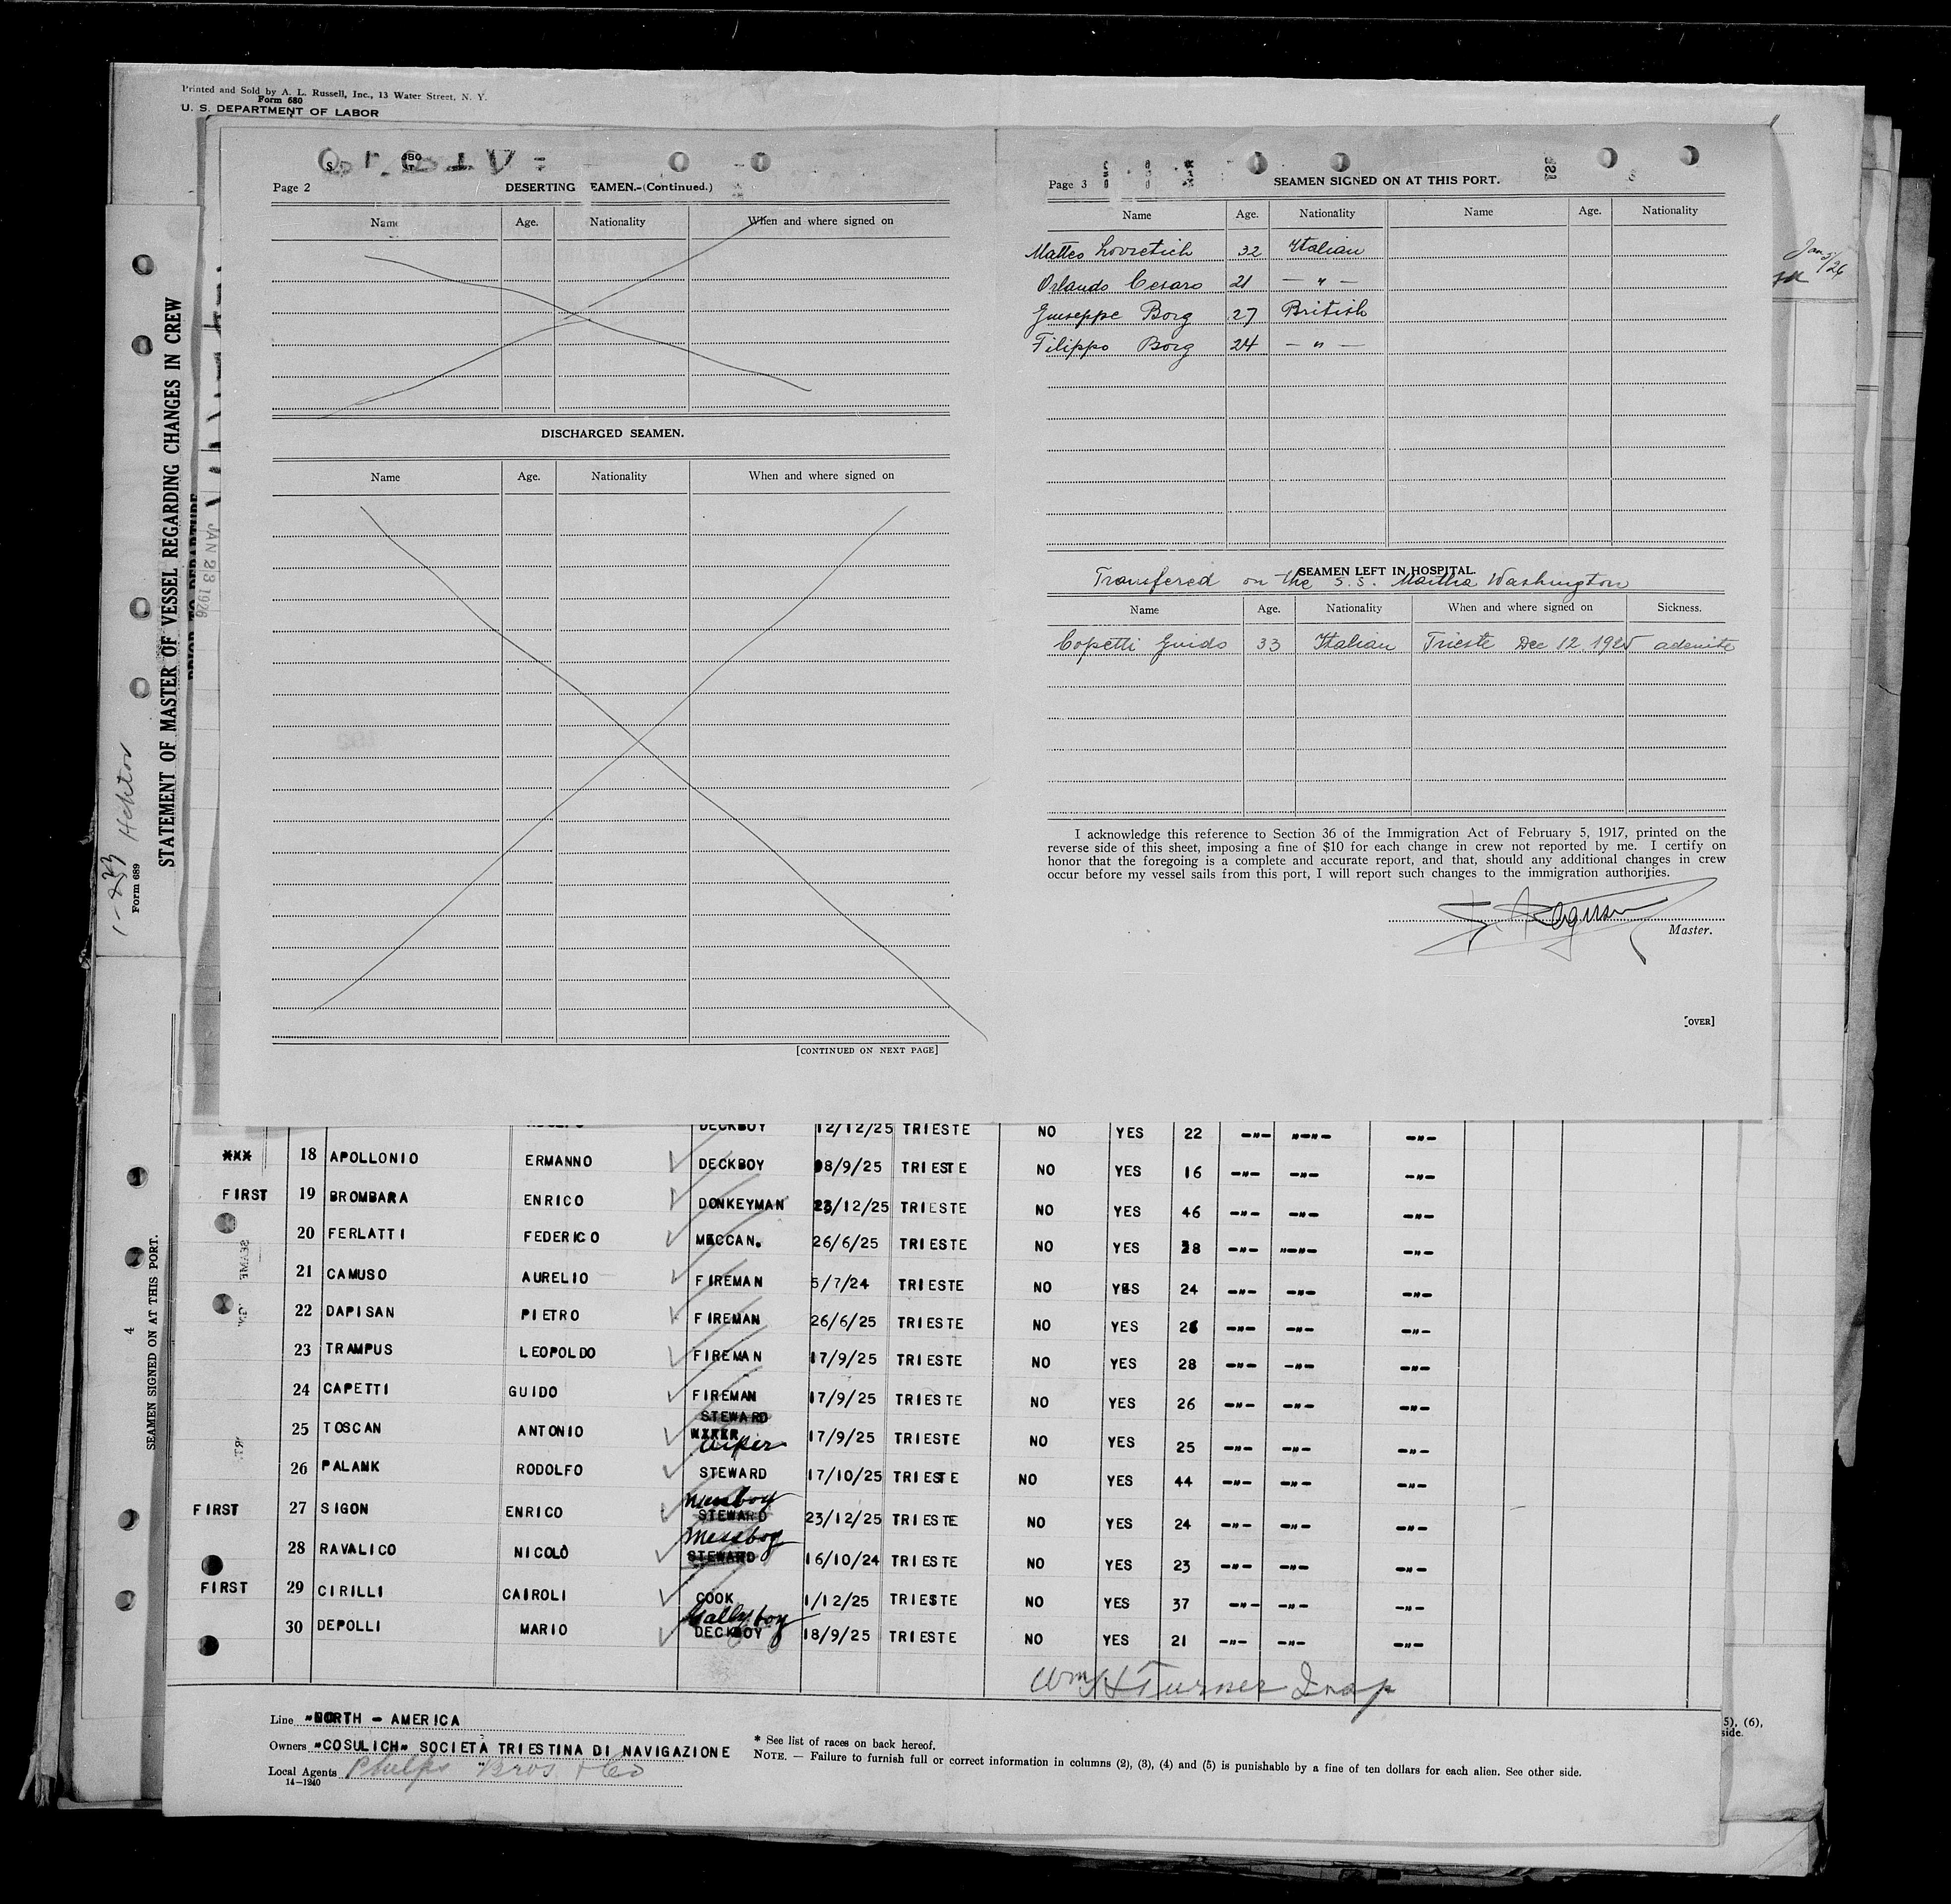 Printed and Sold by A. L. Russell, Inc., 13 Water Street, N. Y.
Form 680
U. S. DEPARTMENT OF LABOR
Page 2
DESERTING EAMEN.-(Continued.)
Name Age. Nationality When and where signed on
DISCHARGED SEAMEN.
Name Age. Nationality When and where signed on
[CONTINUED ON NEXT PAGE]
Page 3
SEAMEN SIGNED ON AT THIS PORT.
Name Age. Nationality Name Age. Nationality
Matteo Lovretich 32 Italian
Orlando Cesaro 21 — " —
Giuseppe Borg 27 British
Filippo Borg 24 — " —
SEAMEN LEFT IN HOSPITAL.
Transfered on the S.S. Martha Washington
Name Age. Nationality When and where signed on Sickness.
Copetti Guido 33 Italian Trieste Dec 12 1925 adenite
I acknowledge this reference to Section 36 of the Immigration Act of February 5, 1917, printed on the
reverse side of this sheet, imposing a fine of $10 for each change in crew not reported by me. I certify on
honor that the foregoing is a complete and accurate report, and that, should any additional changes in crew
occur before my vessel sails from this port, I will report such changes to the immigration authorities.
Master.
[OVER]
Jan 3/26
1-23 Hekton
Form 689
STATEMENT OF MASTER OF VESSEL REGARDING CHANGES IN CREW
PRIOR TO DEPARTURE
JAN 23 1926
4
SEAMEN SIGNED ON AT THIS PORT.
DECKBOY 12/12/25 TRIESTE NO YES 22 —"— —"— —"—
XXX 18 APOLLONIO ERMANNO DECKBOY 18/9/25 TRIESTE NO YES 16 —"— —"— —"—
FIRST 19 BROMBARA ENRICO DONKEYMAN 23/12/25 TRIESTE NO YES 46 —"— —"— —"—
20 FERLATTI FEDERICO MECCAN. 26/6/25 TRIESTE NO YES 28 —"— —"— —"—
21 CAMUSO AURELIO FIREMAN 5/7/24 TRIESTE NO YES 24 —"— —"— —"—
22 DAPISAN PIETRO FIREMAN 26/6/25 TRIESTE NO YES 26 —"— —"— —"—
23 TRAMPUS LEOPOLDO FIREMAN 17/9/25 TRIESTE NO YES 28 —"— —"— —"—
24 CAPETTI GUIDO FIREMAN 17/9/25 TRIESTE NO YES 26 —"— —"— —"—
STEWARD
25 TOSCAN ANTONIO Wiper 17/9/25 TRIESTE NO YES 25 —"— —"— —"—
26 PALANK RODOLFO STEWARD 17/10/25 TRIESTE NO YES 44 —"— —"— —"—
Messboy
FIRST 27 SIGON ENRICO STEWARD 23/12/25 TRIESTE NO YES 24 —"— —"— —"—
Messboy
28 RAVALICO NICOLÒ STEWARD 16/10/24 TRIESTE NO YES 23 —"— —"— —"—
FIRST 29 CIRILLI CAIROLI COOK 1/12/25 TRIESTE NO YES 37 —"— —"— —"—
Gallyboy
30 DEPOLLI MARIO DECKBOY 18/9/25 TRIESTE NO YES 21 —"— —"— —"—
Wm H Turner Insp
Line "NORTH - AMERICA
Owners "COSULICH" SOCIETÀ TRIESTINA DI NAVIGAZIONE
Local Agents Phelps Bros & Co
14—1240
* See list of races on back hereof.
NOTE. — Failure to furnish full or correct information in columns (2), (3), (4) and (5) is punishable by a fine of ten dollars for each alien. See other side.
5), (6),
side.